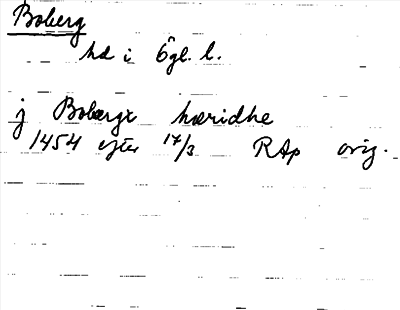 Boberg
hd i Ögl. l.
j Bobærgx hæridhe
1454 efter 17/3 RAp orig.